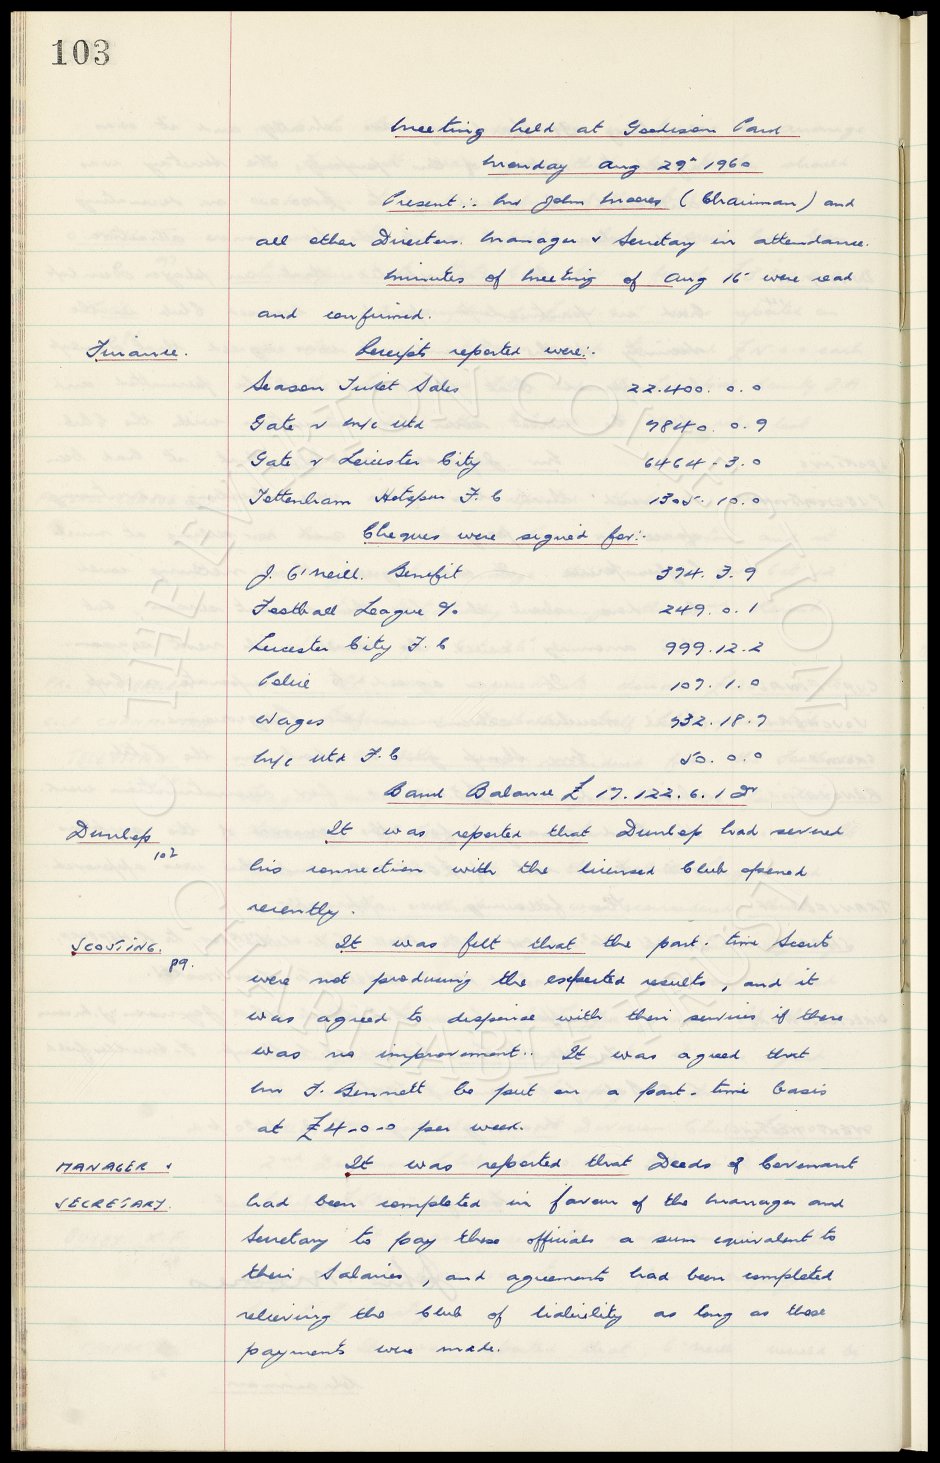 103
Meeting held at Goodison Park
Monday Aug 29th 1960
Present:- Mr John Moores (Chairman) and
all other Directors. Manager & Secretary in attendance.
Minutes of Meeting of Aug 16 were read
and confirmed.
Finance. Receipts reported were:-
Season Ticket Sales 22.400. 0. 0
Gate v M/c Utd 7840. 0. 9
Gate v Leicester City 6464 - 3. 0
Tottenham Hotspur F. C 1305. 10. 0
Cheques were signed for:-
J. O'Neill. Benefit 394. 3. 9
Football League % 249. 0. 1
Leicester City F. C 999. 12. 2
Police 107. 1. 0
Wages 732. 18. 7
M/c Utd F. C 50. 0. 0
Bank Balance £ 17.122. 6. 1 Dr
Dunlop It was reported that Dunlop had severed
102
his connection with the licensed Club opened
recently.
SCOUTING. It was felt that the part-time Scouts
89.
were not producing the expected results, and it
was agreed to dispense with their services if there
was no improvement. It was agreed that
Mr T. Bennett be put on a part-time basis
at £4-0-0 per week.
MANAGER & It was reported that Deeds of Covenant
SECRETARY. had been completed in favour of the Manager and
Secretary to pay those officials a sum equivalent to
their Salaries, and agreements had been completed
relieving the Club of liability as long as those
payments were made.
THE EVERTON COLLECTION
CHARITABLE TRUST